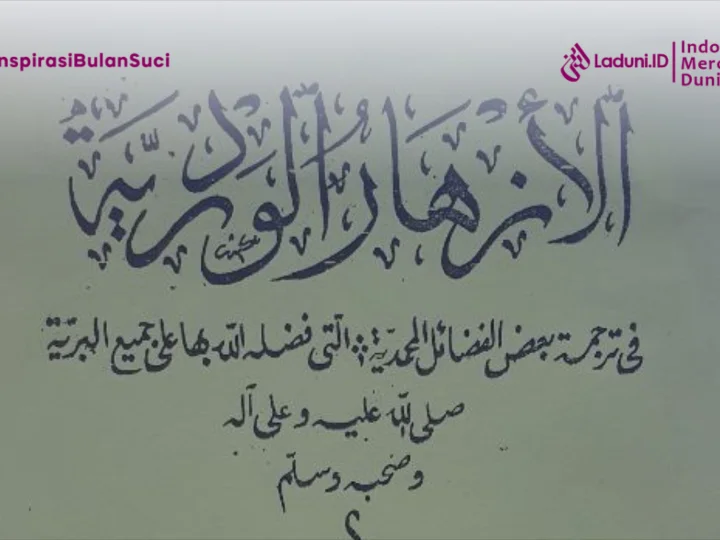 nspirasiBulanSuci
Laduni.ID
Indo
Merc
Duni
الأزهار الوردية
في ترجمة بعض الفضائل المحمدية التي فضله الله بها على جميع البرية
صلى الله عليه وعلى آله
وصحبه وسلم